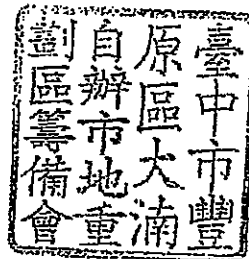 臺中市豐
原區大湳
自辦市地重
劃區籌備會